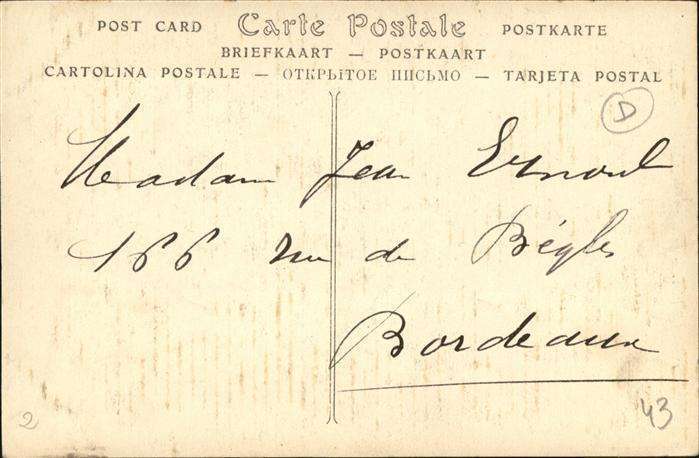 POST CARD Carte Postale POSTKARTE
BRIEFKAART — POSTKAART
CARTOLINA POSTALE — ОТКРЫТОЕ ПИСЬМО — TARJETA POSTAL
D
Madam Jean Ernoul
166 rue de Bégles
Bordeaux
2
43